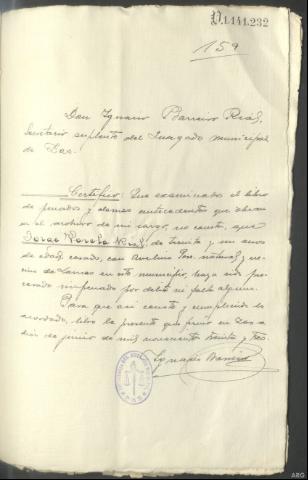 D.1.141.232
159
Don Ignacio Barreiro Rial,
Secretario suplente del Juzgado municipal
de Zas.
Certifico: Que examinados el libro
de penados y demas antecedentes que obran
en el archivo de mi cargo, no consta, que
Jorge Varela Rial, de treinta y un anos
de edad, casado, con Avelina natural y ve-
cino de Lamas en este municipio, haya sido pro-
cesado ni penado por delito ni falta alguna.
Para que asi conste y cumpliendo lo
acordado, libro la presente que firmo en Zas a
de junio de mil novecientos treinta y tres
Ignacio Barreiro
ARG